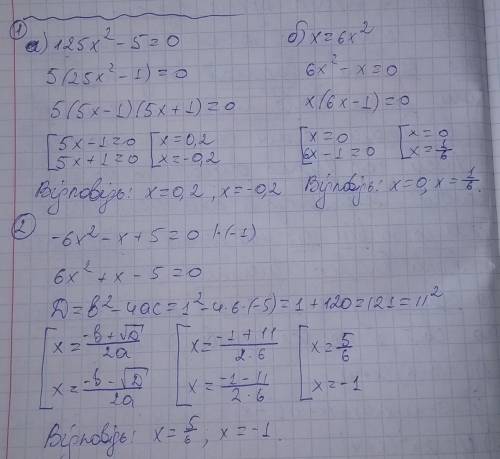 1
а) 125x² - 5 = 0
5(25x² - 1) = 0
5(5x - 1)(5x + 1) = 0
[5x - 1 = 0 [x = 0,2
[5x + 1 = 0 [x = -0,2
Відповідь: x = 0,2, x = -0,2
б) x = 6x²
6x² - x = 0
x(6x - 1) = 0
[x = 0 [x = 0
[6x - 1 = 0 [x = 1/6
Відповідь: x = 0, x = 1/6.
2
-6x² - x + 5 = 0 |·(-1)
6x² + x - 5 = 0
D = b² - 4ac = 1² - 4·6·(-5) = 1 + 120 = 121 = 11²
[x = (-b + √D)/2a [x = (-1 + 11)/(2·6) [x = 5/6
[x = (-b - √D)/2a [x = (-1 - 11)/(2·6) [x = -1
Відповідь: x = 5/6, x = -1.